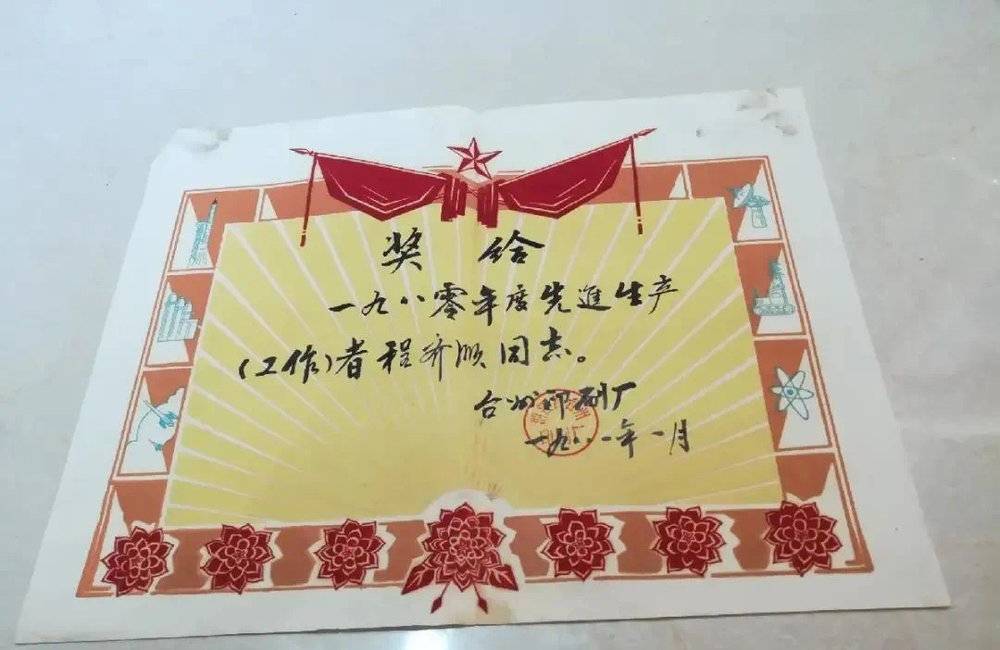 奖给
一九八零年度先進生产
(工作)者程齐顺同志。
台州印刷厂
一九八一年一月